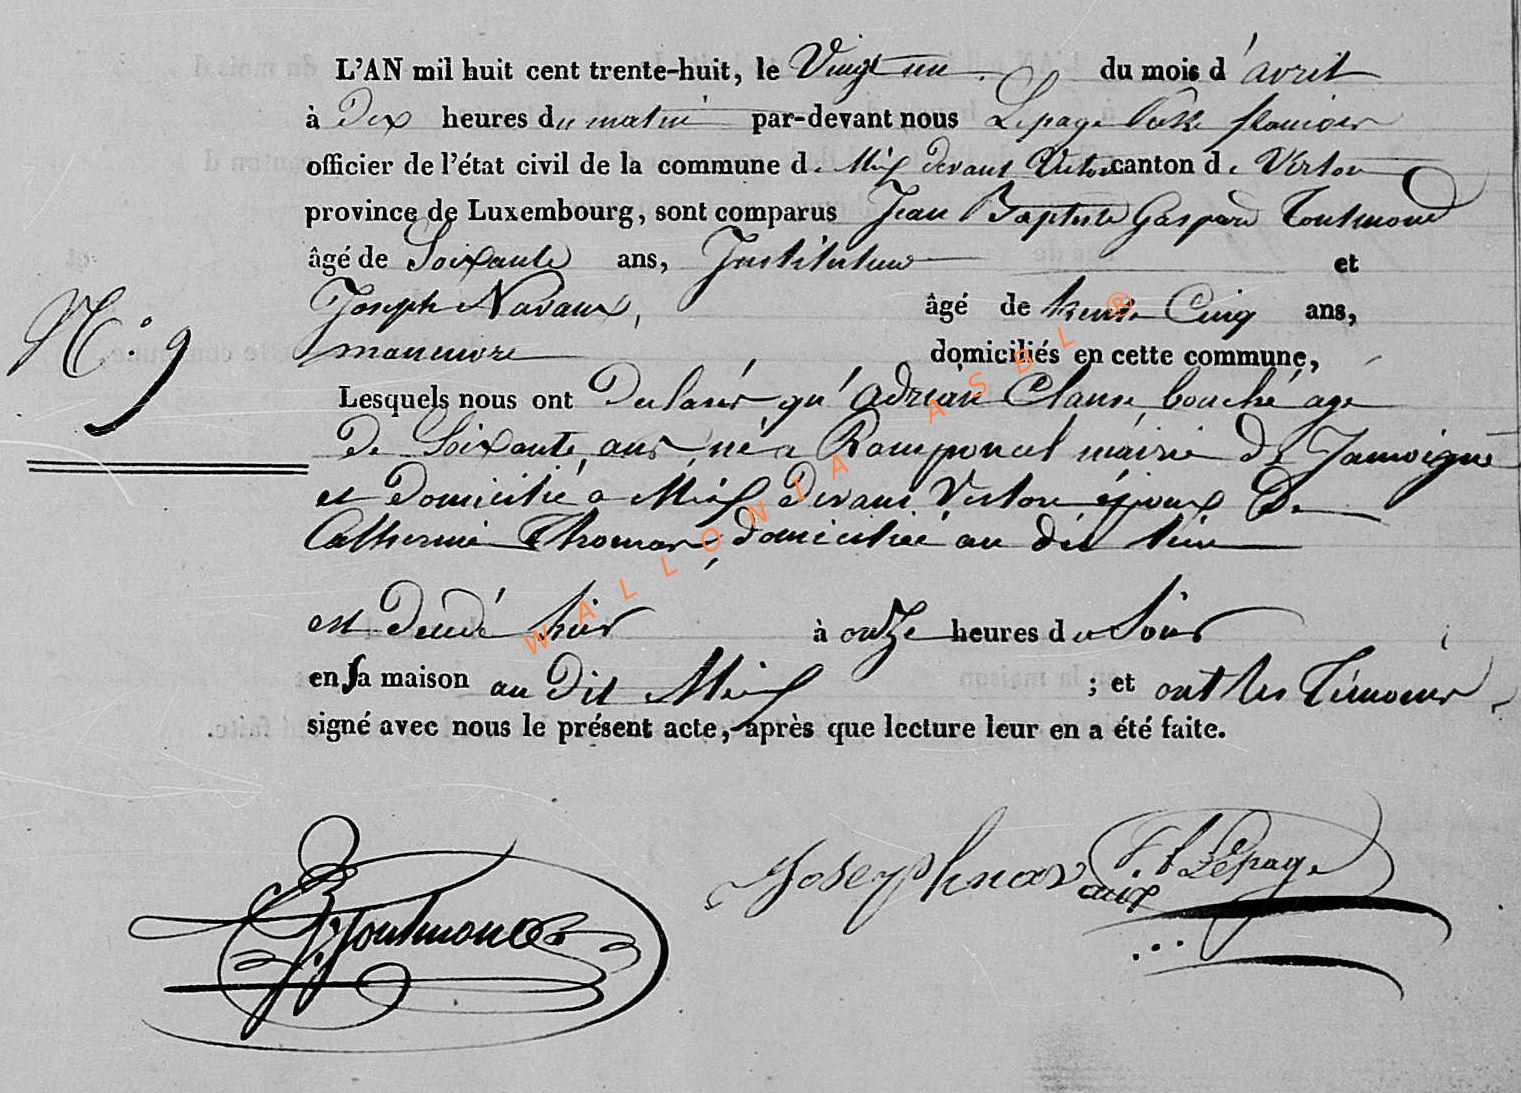 L'AN mil huit cent trente-huit, le Vingt un du mois d'avril
à Dix heures du matin par-devant nous Lepage françois
officier de l'état civil de la commune de Mix devant Virton canton de Virton
province de Luxembourg, sont comparus Jean Baptiste Gaspard Toutmond
âgé de Soixante ans, Instituteur et
Joseph Navaux, âgé de trente Cinq ans,
N° 9
manuvre domiciliés en cette commune,
Lesquels nous ont Declaré qu'Adrian Clause bouché agé
De Soixante ans né a Ramponcel mairie De Jamoigne
et Domicilié a Mix Devant Virton époux De
Catherine Thomas, domiciliée au dit lieu
est Décédé hier à onze heures du Soir
en sa maison au Dit Mix ; et ont les Témoins
signé avec nous le présent acte, après que lecture leur en a été faite.
Toutmond
Joseph navaux
Lepage
WALLONIA ASBL ®